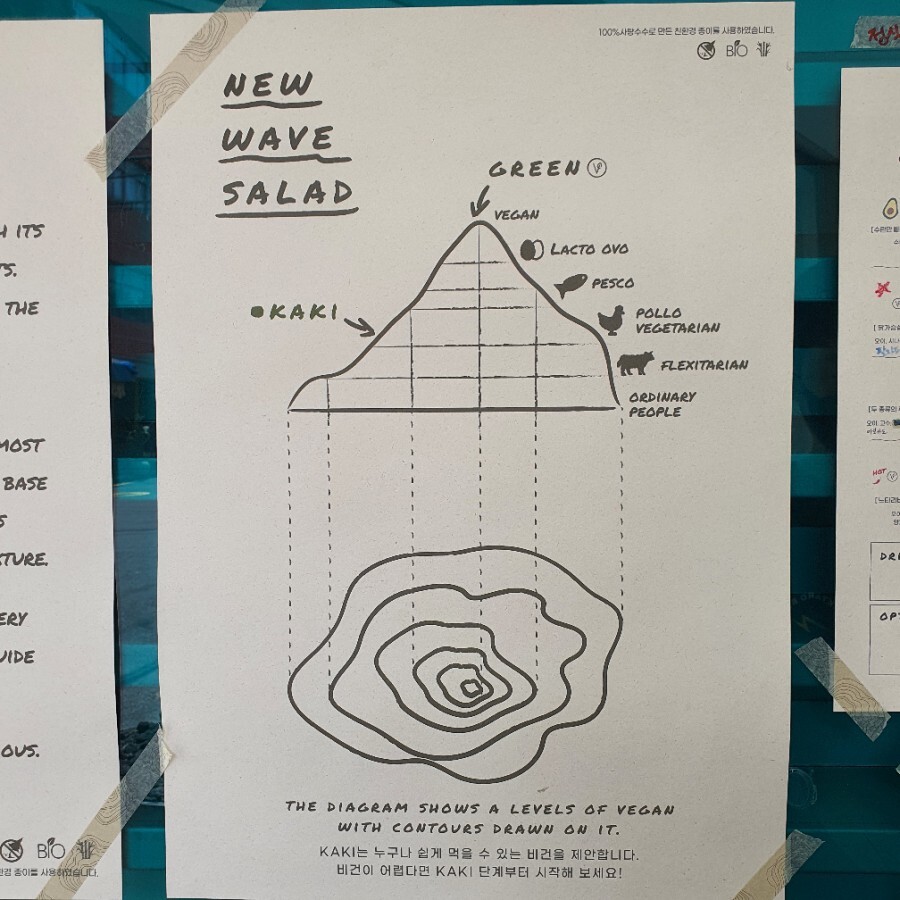 100%사탕수수로 만든 친환경 종이를 사용하였습니다.
BIO
NEW
WAVE
SALAD
GREEN V
VEGAN
LACTO OVO
PESCO
KAKI
POLLO
VEGETARIAN
FLEXITARIAN
ORDINARY
PEOPLE
THE DIAGRAM SHOWS A LEVELS OF VEGAN
WITH CONTOURS DRAWN ON IT.
KAKI는 누구나 쉽게 먹을 수 있는 비건을 제안합니다.
비건이 어렵다면 KAKI 단계부터 시작해 보세요!
ITS
THE
MOST
BASE
BIO
사용하였습니다.
HOT
V